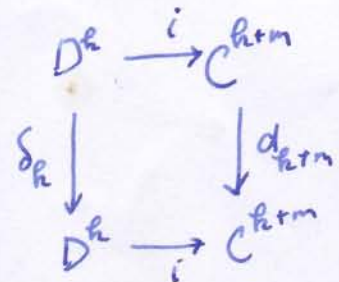 D^k i C^{k+m}
δ_k d_{k+m}
D^k i C^{k+m}